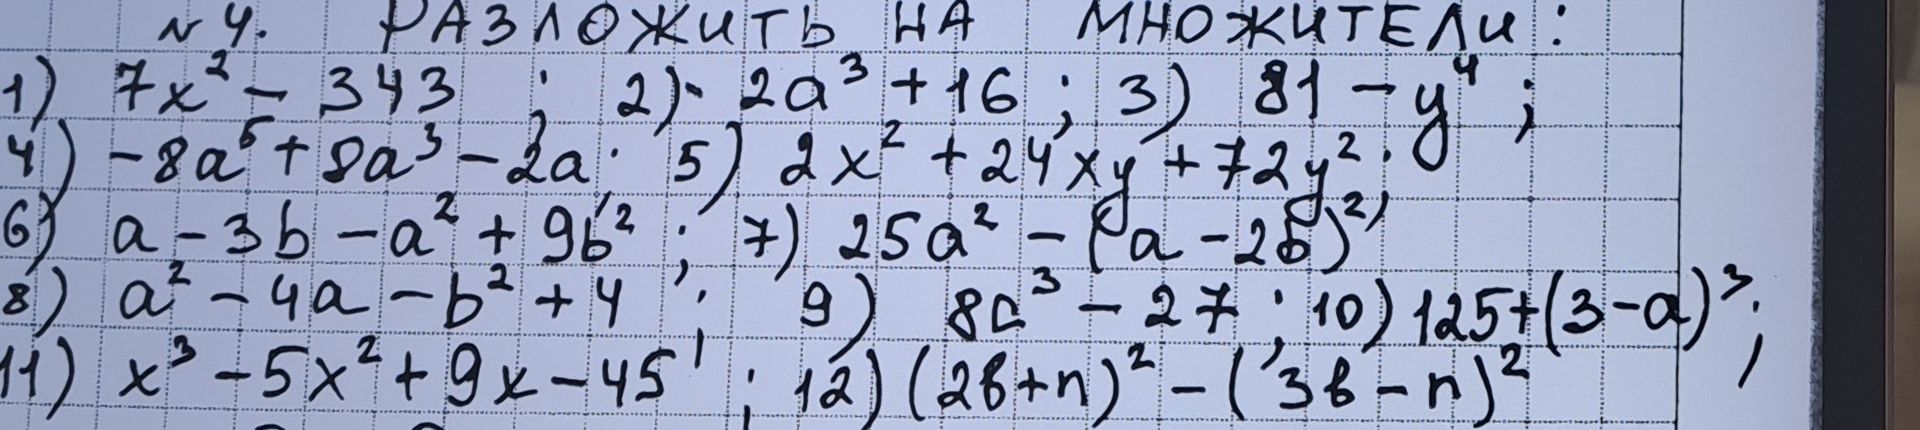 №4. РАЗЛОЖИТЬ НА МНОЖИТЕЛИ:
1) 7x² - 343 ; 2) 2a³ + 16 ; 3) 81 - y⁴ ;
4) -8a⁵ + 8a³ - 2a ; 5) 2x² + 24xy + 72y² ;
6) a - 3b - a² + 9b² ; 7) 25a² - (a - 2b)²
8) a² - 4a - b² + 4 ; 9) 8a³ - 27 ; 10) 125 + (3 - a)³ ;
11) x³ - 5x² + 9x - 45 ; 12) (2b + n)² - (3b - n)²